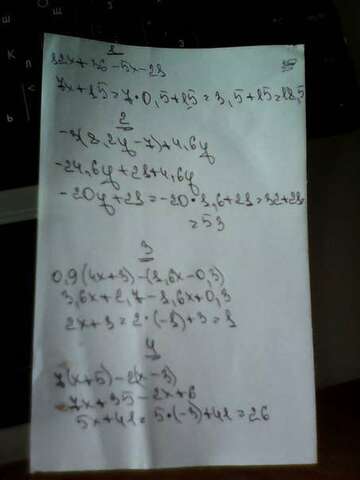 1
12x+36-5x-21
7x+15=7•0,5+15=3,5+15=18,5
2
-3(8,2y-7)+4,6y
-24,6y+21+4,6y
-20y+21=-20•1,6+21=32+21=
=53
3
0,9(4x+3)-(1,6x-0,3)
3,6x+2,7-1,6x+0,3
2x+3=2•(-1)+3=1
4
7(x+5)-2(x-3)
7x+35-2x+6
5x+41=5•(-3)+41=26